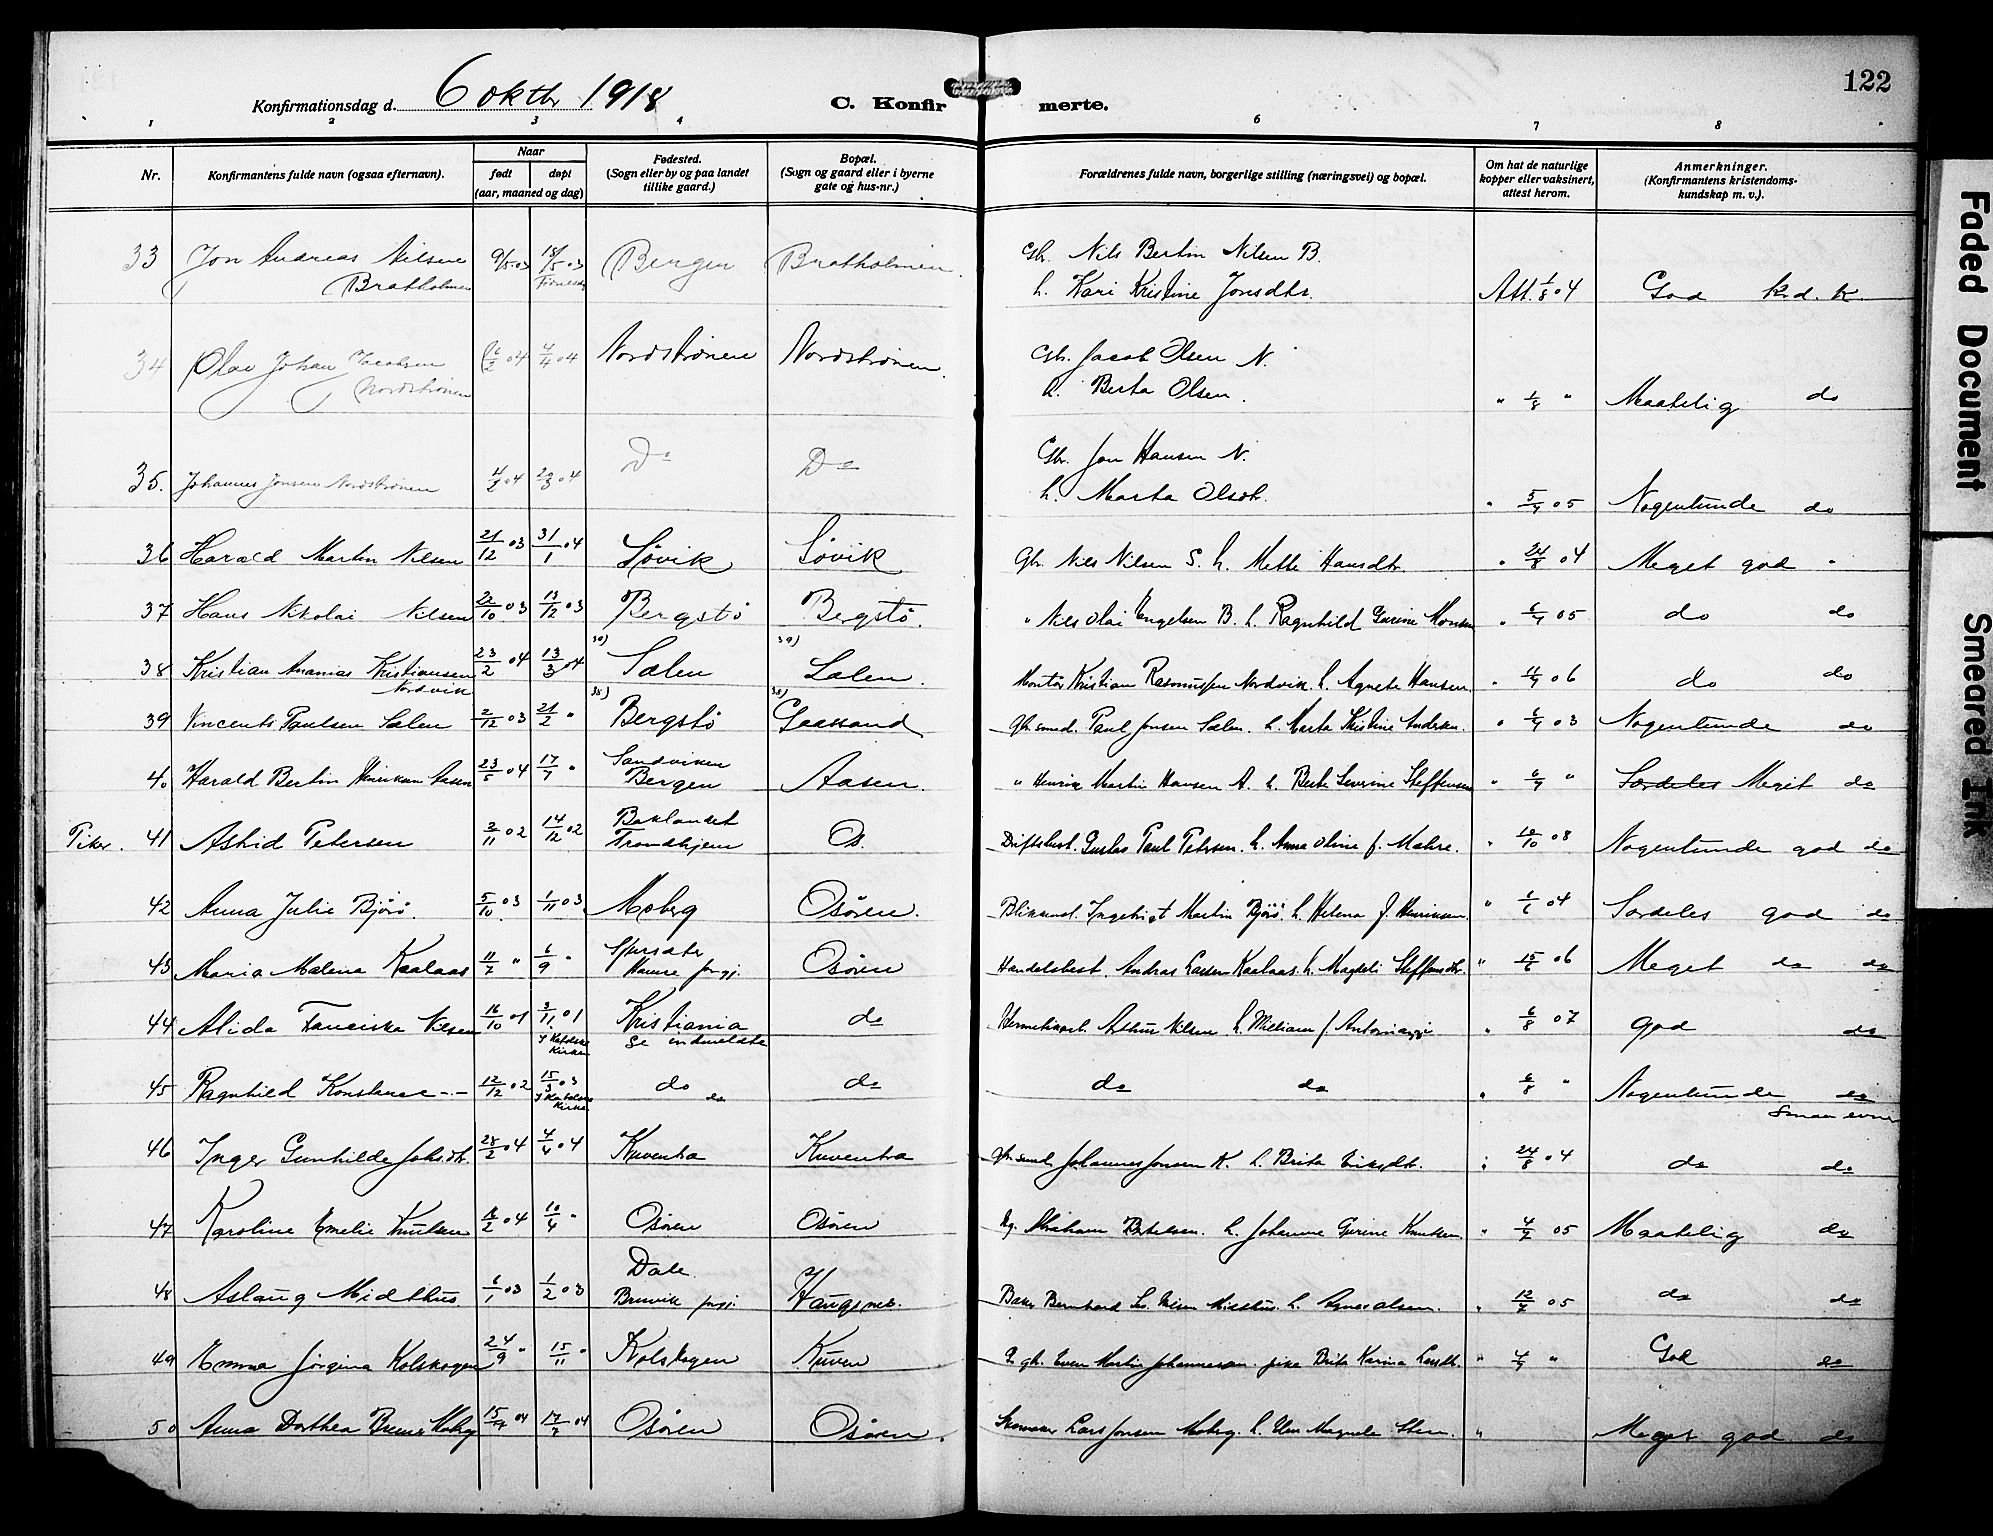 122
Konfirmationsdag d. 6 oktbr 1918
C. Konfirmerte.
1 2 3 4 6 7 8
Nr. Konfirmantens fulde navn (ogsaa efternavn). Naar født døpt (aar, maaned og dag) Fødested. (Sogn eller by og paa landet tillike gaard.) Bopæl. (Sogn og gaard eller i byerne gate og hus-nr.) Forældrenes fulde navn, borgerlige stilling (næringsvei) og bopæl. Om hat de naturlige kopper eller vaksinert, attest herom. Anmerkninger. (Konfirmantens kristendoms-kundskap m. v.).
33 Jon Andreas Nilsen Bratholmen 9/5 03 Bergen Bratholmen. Gbr. Nils Bertin Nilsen B.
h. Kari Kristine Jonsdtr. Att. 1/8 04 God kr.d. K.
34 Olav Johan Jacobsen Nordstrønen 4/4 04 Nordstrønen Nordstrønen. Gbr. Jacob Olsen N.
h. Berta Olsen. " 1/8 " Maatelig do
35. Johannes Jonsen Nordstrønen 4/2 04 do do Gbr. Jon Hansen N.
h. Marta Olsdtr. " 5/9 05 Nogenlunde do
36 Harald Martin Nilsen 21/12 03 31/1 04 Søvik Søvik Gbr. Nils Nilsen S. h. Mette Hansdtr. " 24/8 04 Meget god "
37 Hans Nikolai Nilsen 22/10 03 13/12 03 Bergstø Bergstø. " Nils Olai Engelsen B. h. Ragnhild Gurine Monsen " 6/9 05 do do
38 Kristian Ananias Kristiansen Nordvik 23/2 04 13/3 04 39) Sælen 39) Sælen. Montør Kristian Rasmussen Nordvik. h. Agnete Hansen. " 06 do do
39 Vincents Paulsen Sælen 2/12 03 21/2 " 38) Bergstø 38) Gaassand Gbr. smed. Paul Jonsen Sælen. h. Marta Kristine Andersen. " 6/9 03 Nogenlunde do
40 Harald Bertin Henriksen Aasen 23/5 04 17/7 " Sandviken Bergen Aasen. " Henrik Martin Hansen A. h. Berte Severine Steffensen " 6/9 " Særdeles Meget do
Piker. 41 Astrid Petersen 2/11 02 14/12 02 Baklandet Trondhjem Os. Driftsbest. Gustav Paul Petersen. h. Anna Oline f. " 08 Nogenlunde god do
42 Anna Julie Bjørø. 5/10 03 1/11 03 Moberg Osøren. Ingebrigt Martin Bjørø h. Helena f. Henriksen. " 04 Særdeles god do
43 Maria Malena Kaalaas 11/7 " 6/9 " Hamre prgj. Osøren Handelsbest. Andras Larsen Kaalaas h. Magdeli Steffensdtr. " 15/6 06 Meget do do
44 Alida Fanciska Nilsen 16/10 01 3/11 01 I Katolske Kirken Kristiania se indmeldte do Arthur Nilsen h. William f. " 6/8 07 god do
45 Ragnhild Konstanse - " - 12/12 02 15/3 03 I Katolske Kirke do do do do do " 6/8 " Nogenlunde do
Smaa evner
46 Inger Gunhilde Johsdtr. 28/2 04 4/4 04 Kuventræ Kuventræ Johannes Jonsen K. h. Brita " 24/8 04 do do
47 Karoline Emelie Knutsen 04 10/4 " Osøren Osøren Abraham Bertelsen. h. Johanne Gurine Knutsen " 05 Maatelig do
48 Aslaug Midthus 6/1 03 1/2 03 Dale Bruvik prgj. Haugsnes. Baker Bernhard Midthus. h. Agnes Olsen. " 12/7 05 do do
49 Emma Jørgina Kolskogen 24/9 " 15/11 " Kolskogen Kuven Even Martin Johannesen. pike Brita Karina Larsdtr. " " God do
50 Anna Dorthea Moberg 15/ 04 17/7 04 Osøren Osøren. Skomaker Lars Jonsen Moberg. h. " Meget god do
Faded Document
Smeared Ink